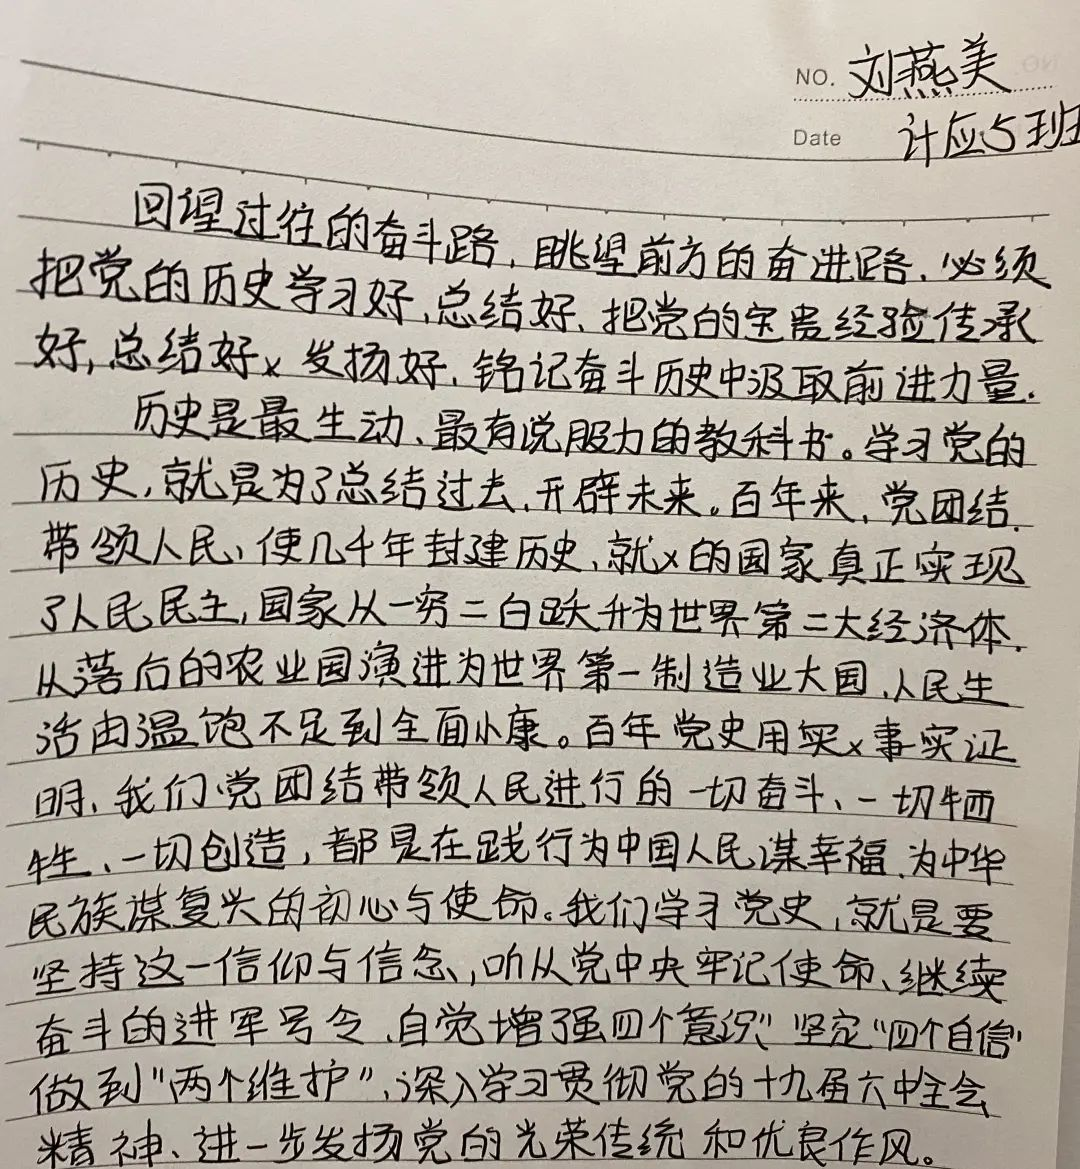 NO. 刘燕美
Date 计应5班
回望过往的奋斗路,眺望前方的奋进路,必须
把党的历史学习好,总结好、把党的宝贵经验传承
好,总结好x 发扬好,铭记奋斗历史中汲取前进力量.
历史是最生动、最有说服力的教科书。学习党的
历史,就是为了总结过去,开辟未来。百年来,党团结
带领人民,使几千年封建历史,就x的国家真正实现
了人民民主,国家从一穷二白跃升为世界第二大经济体.
从落后的农业国演进为世界第一制造业大国,人民生
活由温饱不足到全面小康。百年党史用实x事实证
明,我们党团结带领人民进行的一切奋斗、一切牺
牲、一切创造,都是在践行为中国人民谋幸福,为中华
民族谋复兴的初心与使命。我们学习党史,就是要
坚持这一信仰与信念,听从党中央牢记使命、继续
奋斗的进军号令,自觉增强四个意识”坚定“四个自信”
做到“两个维护”,深入学习贯彻党的十九届六中全会
精神、进一步发扬党的光荣传统和优良作风。